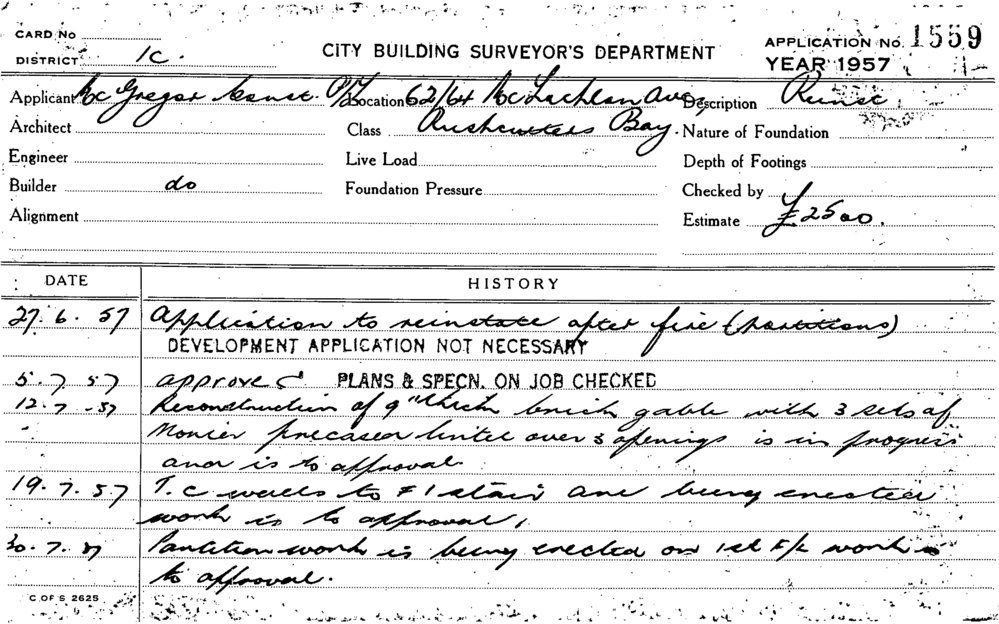 CARD No
DISTRICT 1C.
CITY BUILDING SURVEYOR'S DEPARTMENT
APPLICATION No. 1559
YEAR 1957
Applicant McGregor Const. P/L Location 62/64 McLachlan Ave, Description Reinst.
Architect Class Rushcutters Bay. Nature of Foundation
Engineer Live Load Depth of Footings
Builder do Foundation Pressure Checked by
Alignment Estimate £2500.
DATE HISTORY
27.6.57 Application to reinstate after fire (partitions)
DEVELOPMENT APPLICATION NOT NECESSARY
5.7.57 approved PLANS & SPECN. ON JOB CHECKED
12.7.57 Reconstruction of 9" thick brick gable with 3 sets of
Monier precased lintel over 3 openings is in progress
and is to approval.
19.7.57 T.C walls to #1 stair are being erected
work is to approval,
30.7.57 Partition work is being erected on 1st F/L work is
to approval.
C OF S 2625